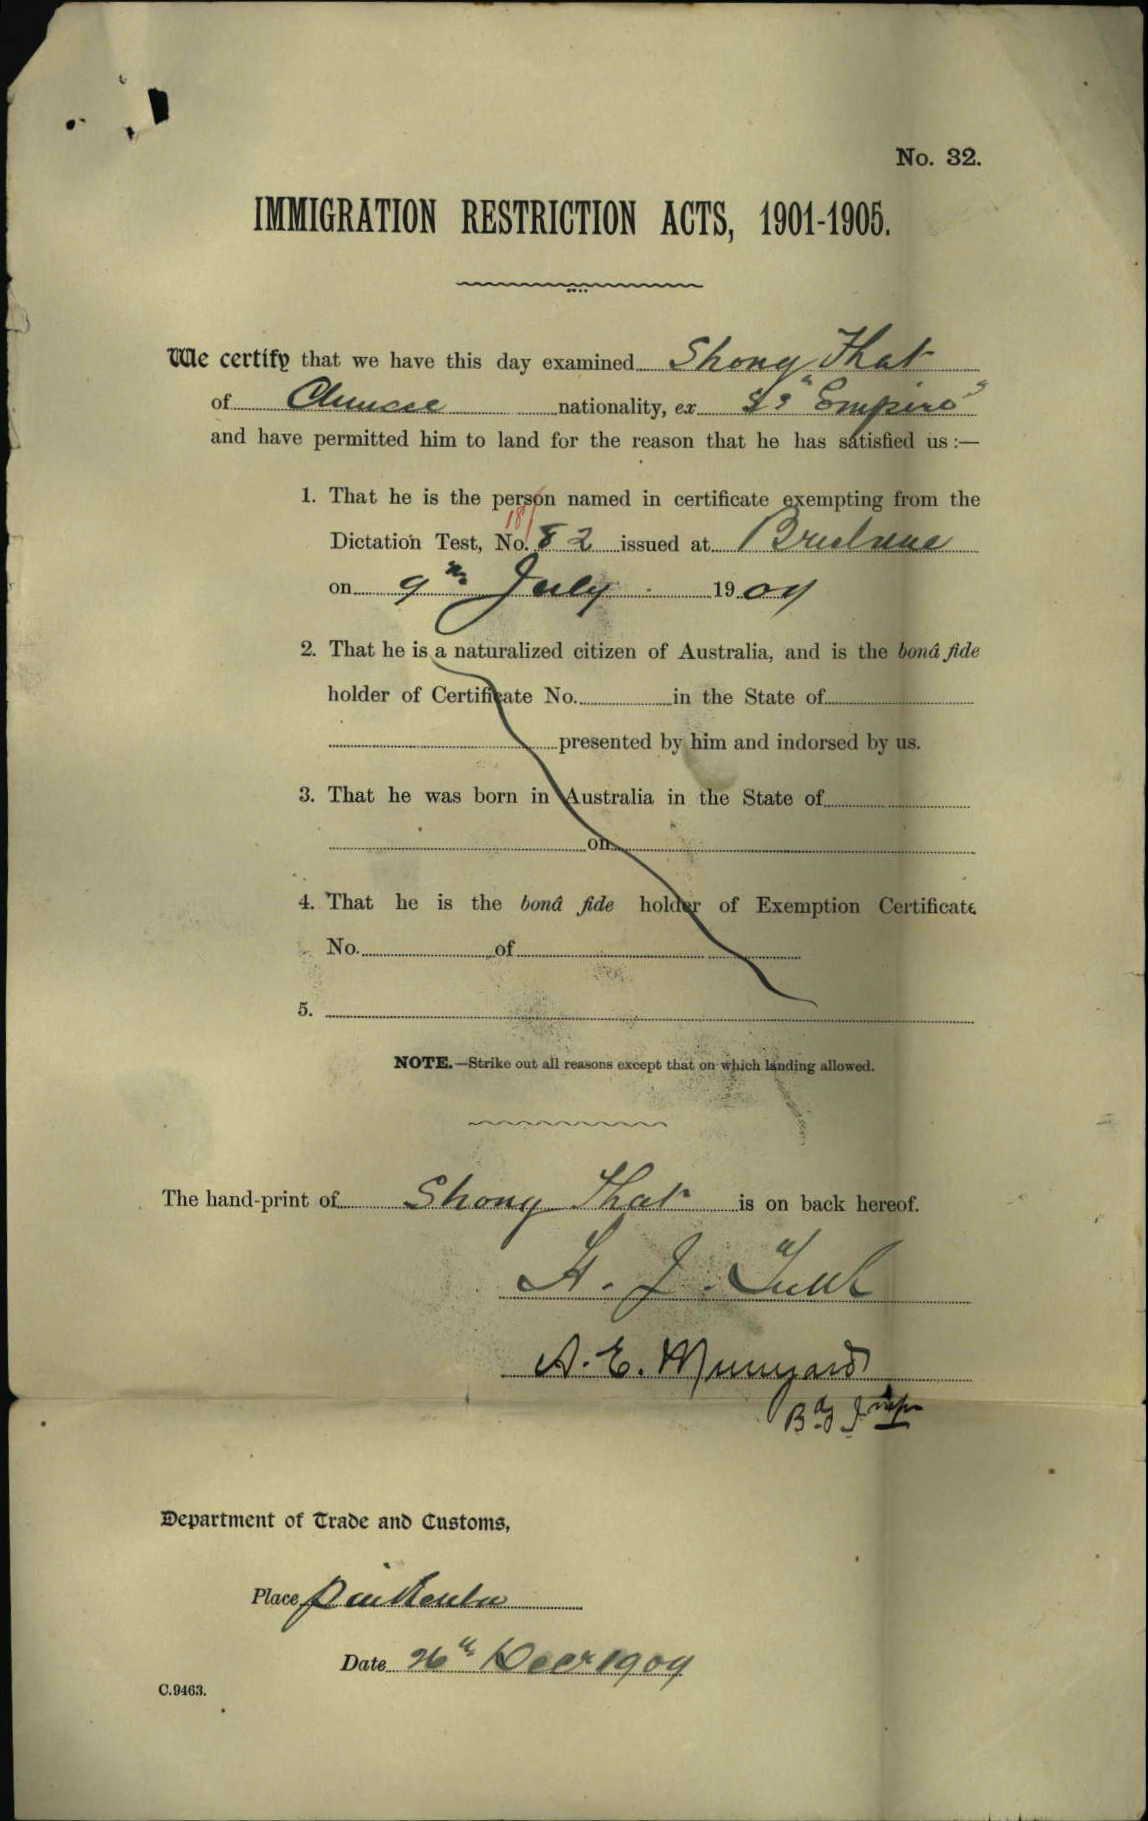 No. 32.
IMMIGRATION RESTRICTION ACTS, 1901-1905.
We certify that we have this day examined Shong That
of Chinese nationality, ex SS "Empire"
and have permitted him to land for the reason that he has satisfied us :—
1. That he is the person named in certificate exempting from the
18/
Dictation Test, No. 82 issued at Brisbane
on 9th July 1909
2. That he is a naturalized citizen of Australia, and is the bonâ fide
holder of Certificate No. in the State of
presented by him and indorsed by us.
3. That he was born in Australia in the State of
on
4. That he is the bonâ fide holder of Exemption Certificate
No. of
5.
NOTE.—Strike out all reasons except that on which landing allowed.
The hand-print of Shong That is on back hereof.
H. J.
A. E. Munyard
Department of Trade and Customs,
Place Pinkenba
Date 26th Decr 1909
C.9463.